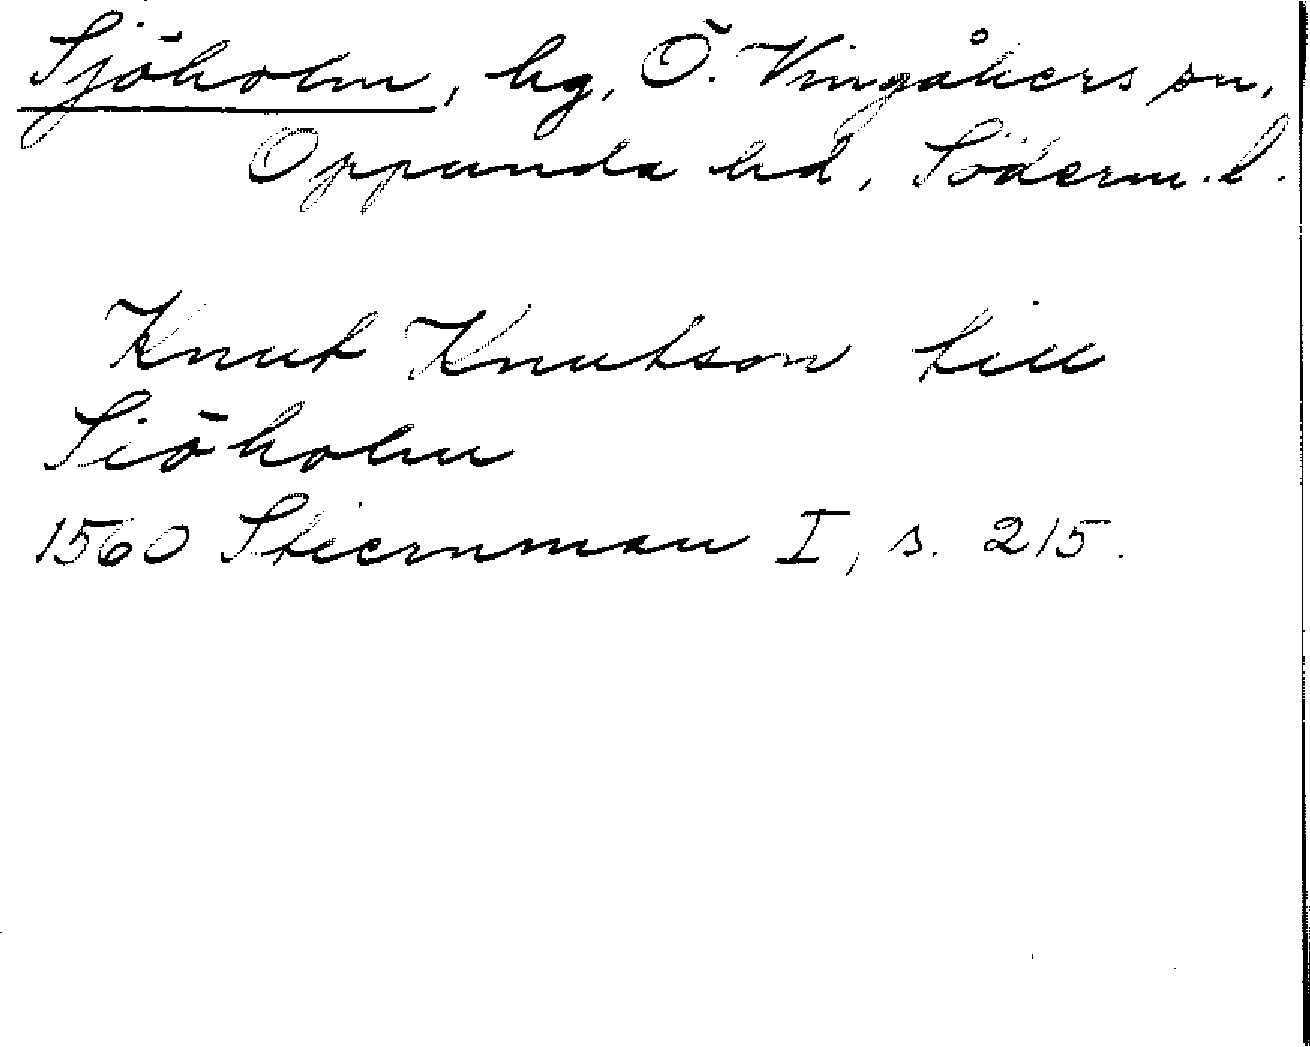 Sjöholm, hg, Ö. Vingåkers sn,
Oppunda hd, Söderm. l.
Knut Knutson till
Siöholm
1560 Stiernman I, s. 215.